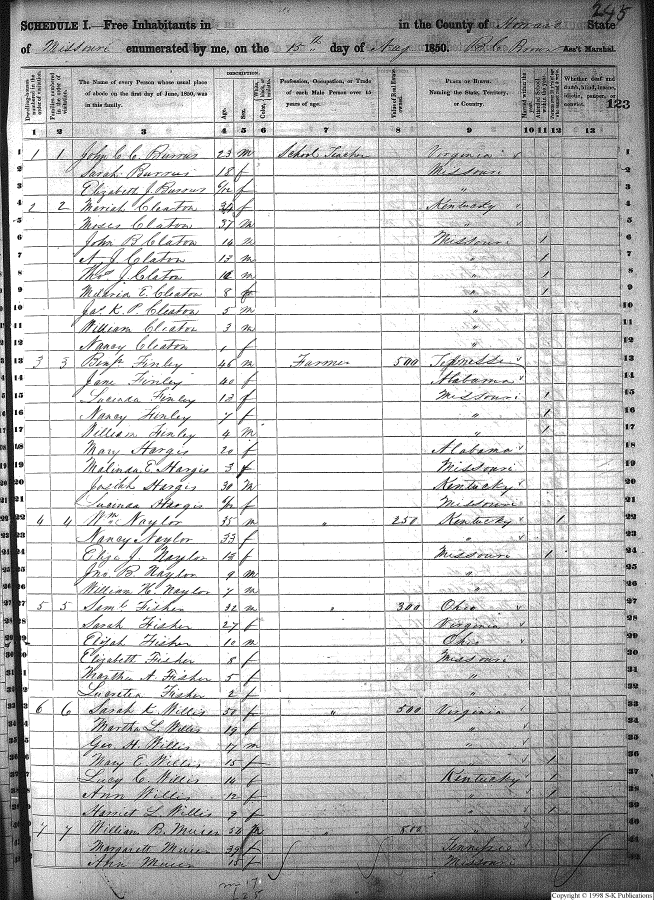 245
SCHEDULE I.—Free Inhabitants in in the County of Howard State
of Missouri enumerated by me, on the 15th day of Aug 1850. B. C. Brown Ass't Marshal.
DESCRIPTION.
Dwelling-houses numbered in the order of visitation. Families numbered in the order of visitation. The Name of every Person whose usual place of abode on the first day of June, 1850, was in this family. Age. Sex. Color Profession, Occupation, or Trade of each Male Person over 15 years of age. Value of Real Estate owned. PLACE OF BIRTH. Naming the State, Territory, or Country. Married within the year. Attended School within the year. Whether deaf and dumb, blind, insane, idiotic, pauper, or convict.
123
1 2 3 4 5 6 7 8 9 10 11 12 13
1 1 1 John C. C. Burrus 23 m School Teacher Virginia
2 Sarah Burrus 18 f Missouri
3 Elizabeth J. Burrus 6/12 f "
4 2 2 Mariah Cleaton 34 f Kentucky
5 Moses Claton 37 m "
6 John B. Claton 14 m Missouri 1
7 A. J. Claton 13 m " 1
8 Thos J. Claton m " 1
9 E. Cleaton 8 f " 1
10 Jas. K. P. Cleaton 5 m "
11 William Cleaton 3 m "
12 Nancy Cleaton 1 f "
13 3 3 Benj. Finley 46 m Farmer 500 Tennessee
14 Jane Finley 40 f Alabama
15 Lucinda Finley 13 f Missouri 1
16 Nancy Finley 7 f " 1
17 William Finley 4 m " 1
18 Mary Hargis 20 f Alabama
19 Malinda E. Hargis 3 f Missouri
20 Josiah Hargis 30 m Kentucky
21 Lucinda Hargis f Missouri
22 4 4 Wm Naylor 35 m " 250 Kentucky 1
23 Nancy Naylor 33 f "
24 Eliza J. Naylor 13 f Missouri 1
25 Jno. B. Naylor 9 m "
26 William H. Naylor 7 m "
27 5 5 Saml. Fisher 32 m " 300 Ohio
28 Sarah Fisher 27 f Virginia
29 Elijah Fisher 10 m Ohio
30 Elizabeth Fisher 8 f Missouri
31 Martha A. Fisher 5 f "
32 Lucretia Fisher 2 f "
33 6 6 Sarah K. Willis 50 f " 500 Virginia
34 Martha L. Willis 19 f "
35 Geo. H. Willis 17 m "
36 Mary E. Willis 15 f " 1
37 Lucy C. Willis 14 f Kentucky 1
38 Ann Willis 12 f " 1
39 Harriet L. Willis 9 f " 1
40 7 7 William B. 52 m " 800 "
41 Margarett 39 f Tennessee
42 Ann 15 f Missouri
17
25
Copyright © 1998 S-K Publications